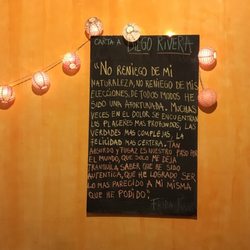 CARTA A DIEGO RIVERA
"NO RENIEGO DE MI
NATURALEZA, NO RENIEGO DE MIS
ELECCIONES, DE TODOS MODOS HE
SIDO UNA AFORTUNADA. MUCHAS
VECES EN EL DOLOR SE ENCUENTRAN
LOS PLACERES MAS PROFUNDOS, LAS
VERDADES MAS COMPLEJAS, LA
FELICIDAD MAS CERTERA. TAN
ABSURDO Y FUGAZ ES NUESTRO PASO POR
EL MUNDO, QUE SOLO ME DEJA
TRANQUILA SABER QUE HE SIDO
AUTENTICA, QUE HE LOGRADO SER
LO MAS PARECIDO A MI MISMA
QUE HE PODIDO".
FRIDA KAHLO